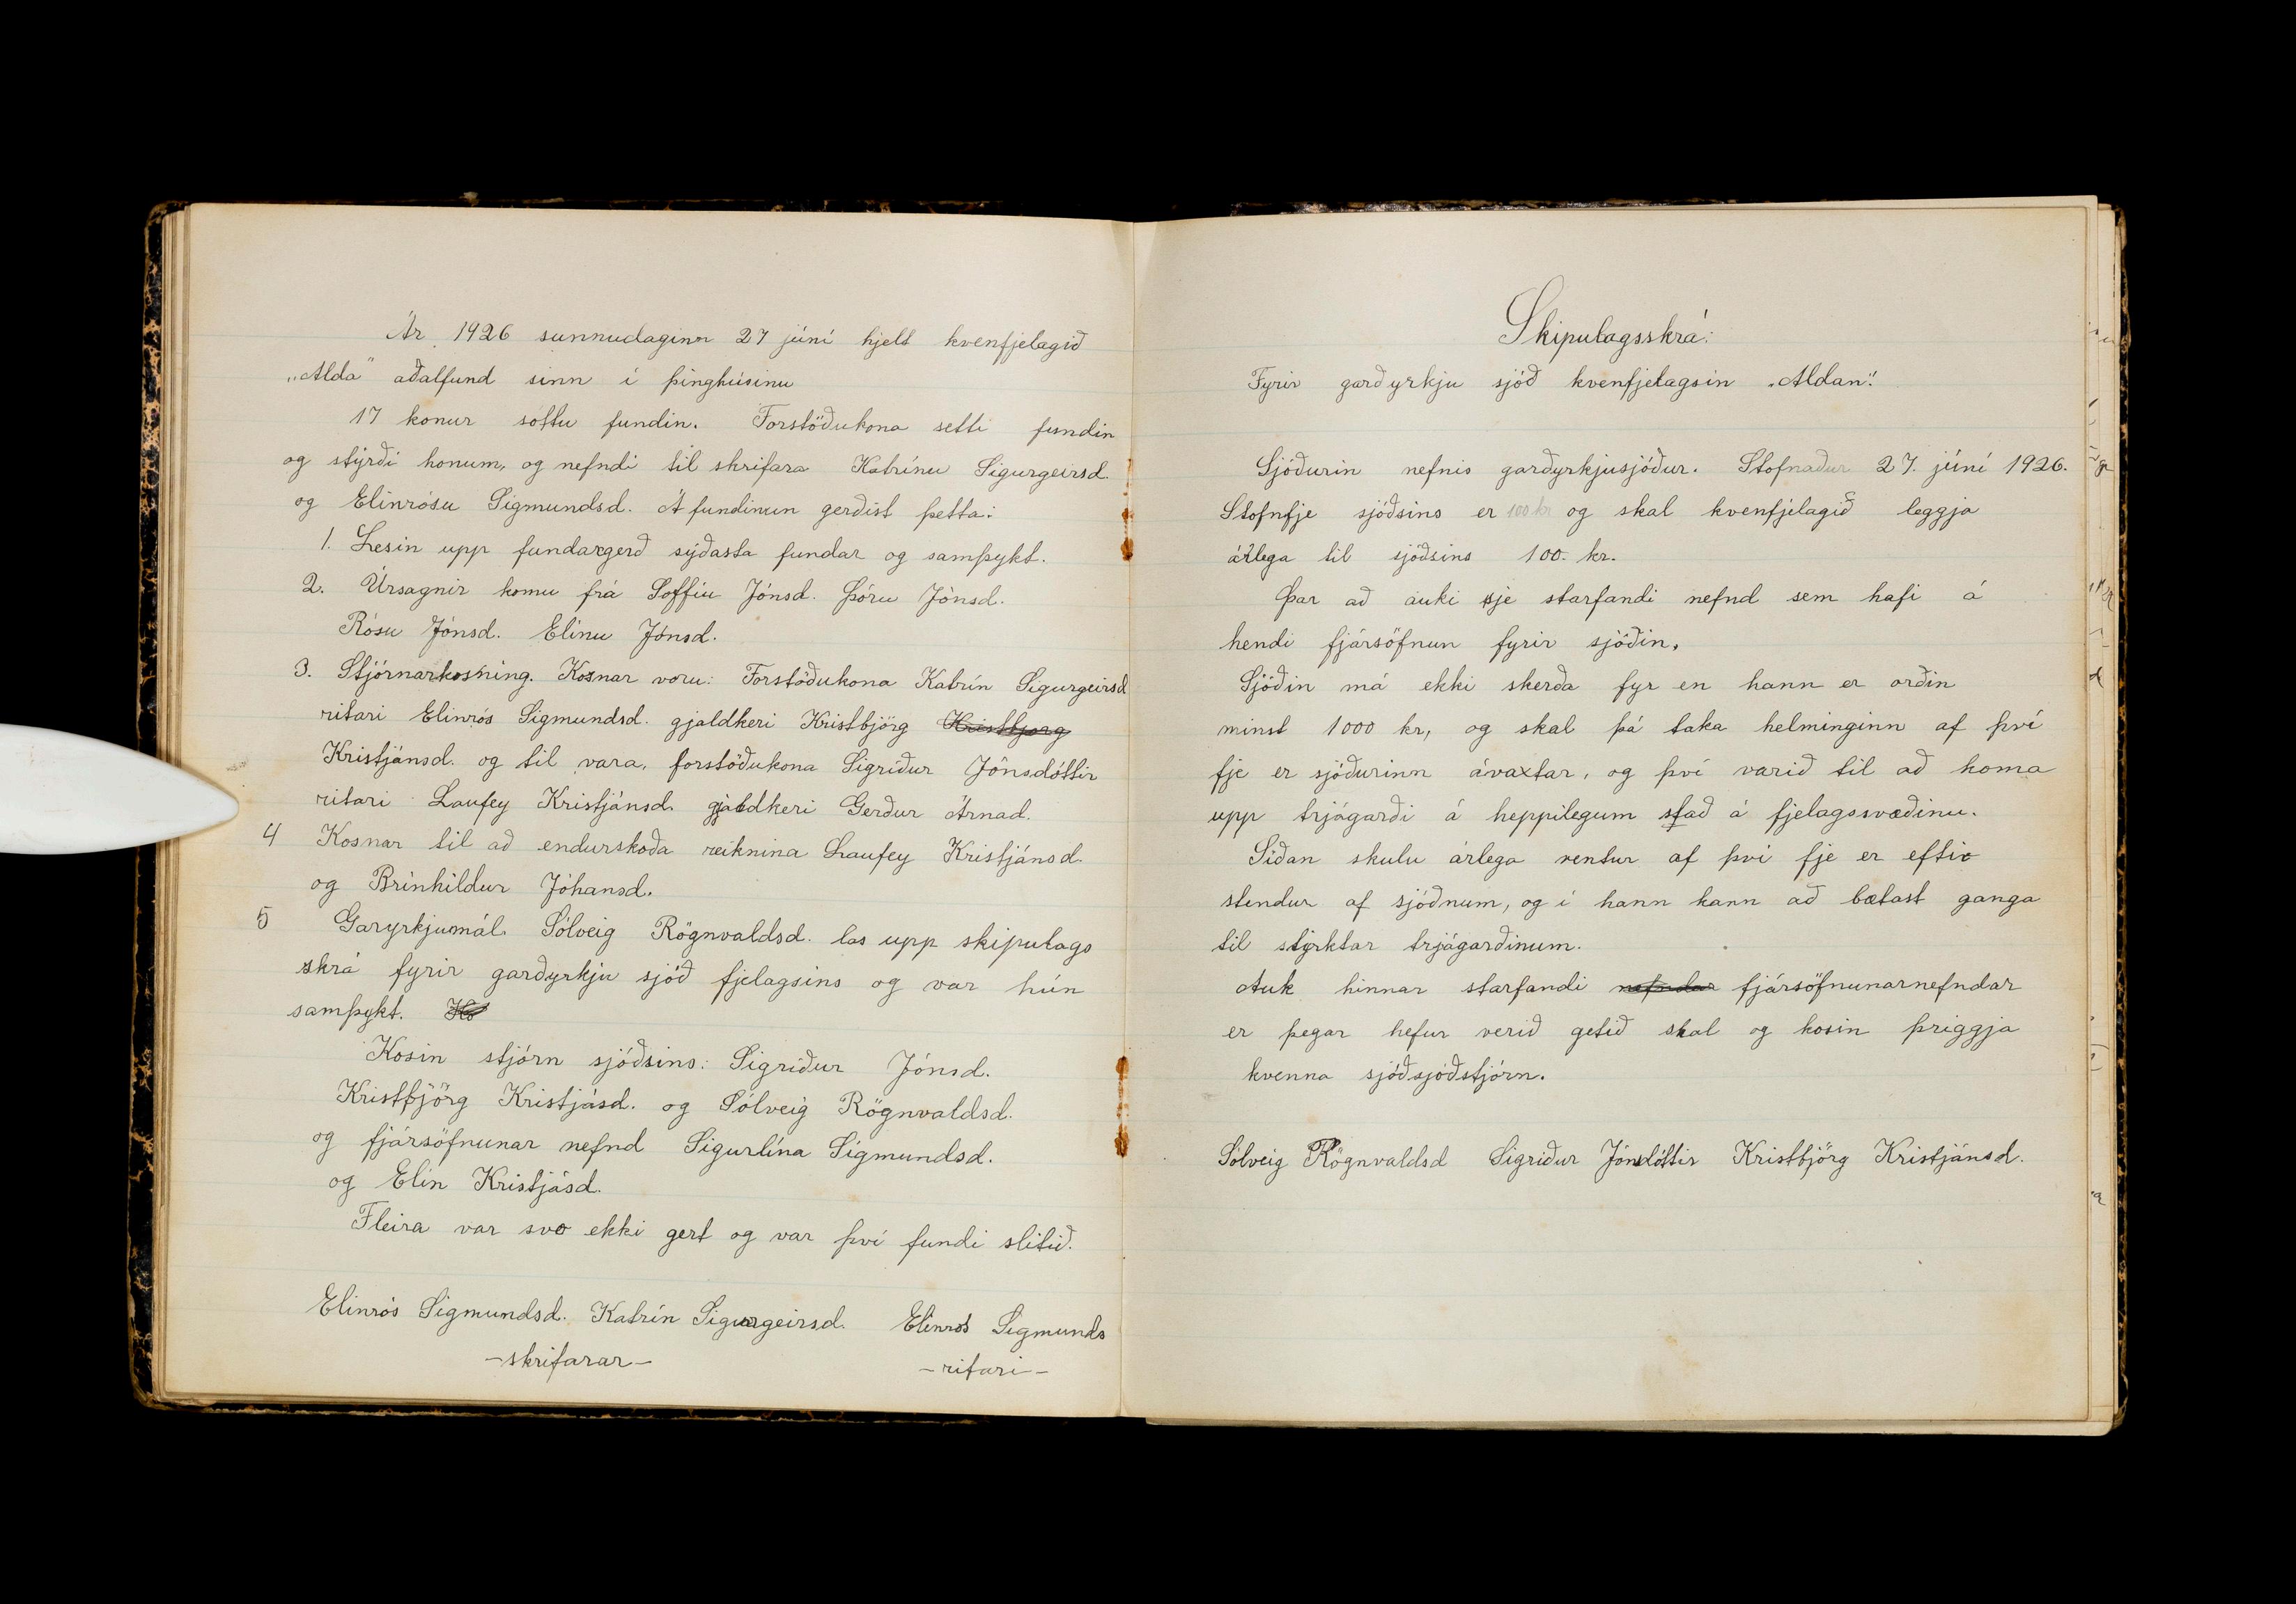 Ár 1926 sunnudaginn 27 júní hjelt kvenfjelagið
„Alda" aðalfund sinn í þinghúsinu
17 konur sóttu fundin. Forstöðukona setti fundin
og stýrði honum, og nefndi til skrifara Katrínu Sigurgeirsd.
og Elinrósu Sigmundsd. Á fundinun gerðist þetta:
1. Lesin upp fundargerð sýðasta fundar og samþykt.
2. Úrsagnir komu frá Soffíu Jónsd. Þóru Jónsd.
Rósu Jónsd. Elínu Jónsd.
3. Stjórnarkosning. Kosnar voru: Forstöðukona Katrín Sigurgeirsd
ritari Elinrós Sigmundsd. gjaldkeri Kristbjörg Kristbjorg
Kristjánsd. og til vara, forstöðukona Sigríður Jónsdóttir
ritari Laufey Kristjánsd. gjaldkeri Gerður Árnad.
4 Kosnar til að endurskoða reiknina Laufey Kristjánsd.
og Brinhildur Jóhansd.
5 Garyrkjumál. Sólveig Rögnvaldsd. las upp skipulags
skrá fyrir garðyrkju sjóð fjelagsins og var hún
samþykt. Ko
Kosin stjórn sjóðsins: Sigríður Jónsd.
Kristbjörg Kristjásd. og Sólveig Rögnvaldsd.
og fjársöfnunar nefnd Sigurlína Sigmundsd.
og Elín Kristjásd.
Fleira var svo ekki gert og var því fundi slitið.
Elinrós Sigmundsd. Katrín Sigurgeirsd. Elinrós Sigmunds
-skrifarar- -ritari-
Skipulagsskrá:
Fyrir garðyrkju sjóð kvenfjelagsin „Aldan".
Sjóðurin nefnis garðyrkjusjóður. Stofnaður 27. júní 1926.
Stofnfje sjóðsins er 100 kr og skal kvenfjelagið leggja
árlega til sjóðsins 100. kr.
Þar að auki sje starfandi nefnd sem hafi á
hendi fjársöfnun fyrir sjóðin.
Sjóðin má ekki skerða fyr en hann er orðin
minst 1000 kr, og skal þá taka helminginn af því
fje er sjóðurinn ávaxtar, og því varið til að koma
upp trjágarði á heppilegum stað á fjelagssvæðinu.
Síðan skulu árlega ventur af því fje er eftir
stendur af sjóðnum, og í hann kann að bætast ganga
til stýrktar trjágarðinum.
Auk hinnar starfandi nefndar fjársöfnunarnefndar
er þegar hefur verið getið skal og kosin þriggja
kvenna sjóðsjóðstjórn.
Sólveig Rögnvaldsd Sigríður Jónsdóttir Kristbjörg Kristjánsd.